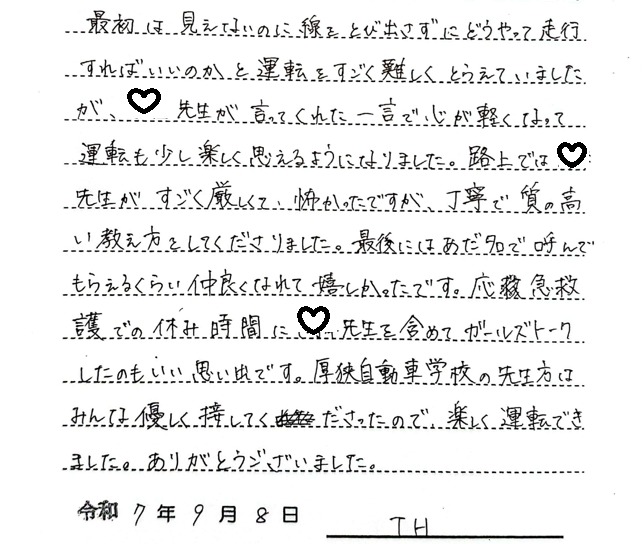 最初は見えないのに線をとび出さずにどうやって走行
すればいいのかと運転をすごく難しくとらえていました
が、♡先生が言ってくれた一言で心が軽くなって
運転も少し楽しく思えるようになりました。路上では♡
先生がすごく厳しくて、怖かったですが、丁寧で質の高
い教え方をしてくださりました。最後にはあだ名で呼んで
もらえるくらい仲良くなれて嬉しかったです。応救急救
護での休み時間に♡先生を含めてガールズトーク
したのもいい思い出です。厚狭自動車学校の先生方は
みんな優しく接してくださったので、楽しく運転でき
ました。ありがとうございました。
令和7年9月8日 TH